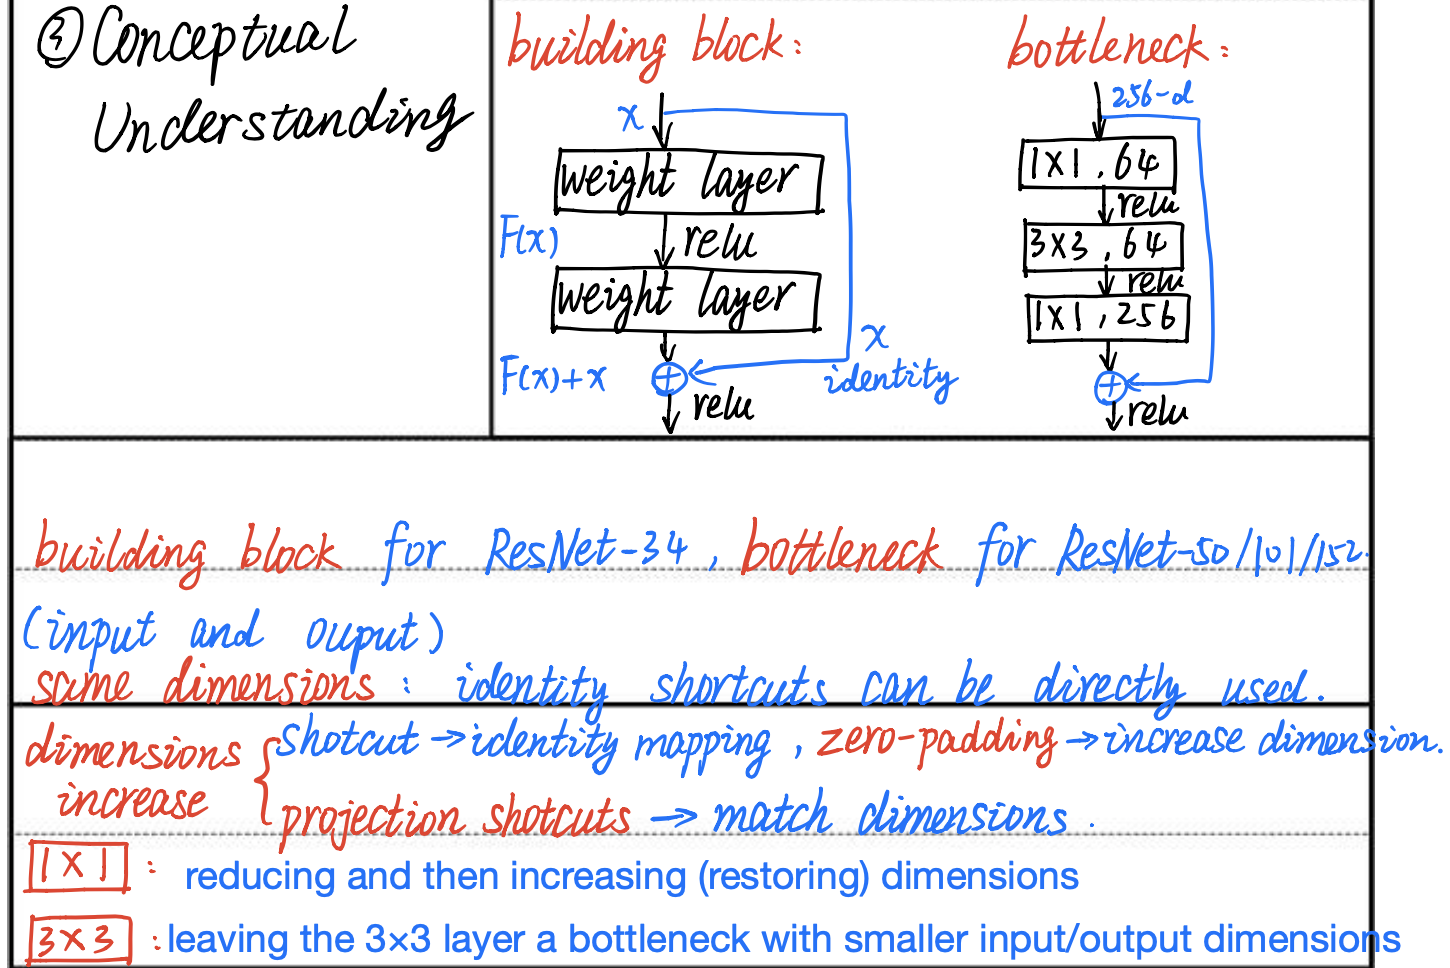 ④ Conceptual
Understanding
building block:
x
weight layer
F(x)
relu
weight layer
x
identity
F(x)+x
+
relu
bottleneck:
256-d
1×1, 64
relu
3×3, 64
relu
1×1, 256
+
relu
building block for ResNet-34, bottleneck for ResNet-50/101/152.
(input and ouput)
same dimensions: identity shortcuts can be directly used.
dimensions
increase
Shotcut → identity mapping, zero-padding → increase dimension.
projection shotcuts → match dimensions.
1×1: reducing and then increasing (restoring) dimensions
3×3: leaving the 3×3 layer a bottleneck with smaller input/output dimensions